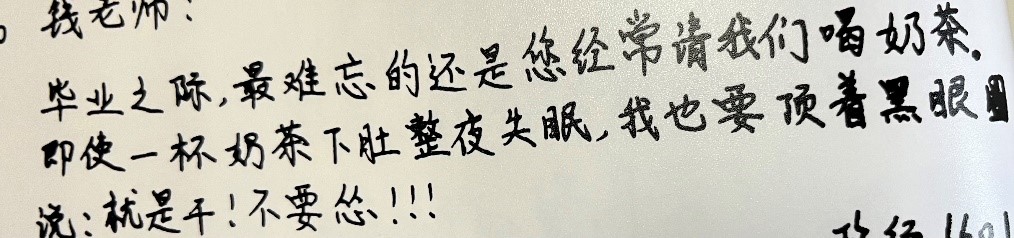 钱老师：
毕业之际，最难忘的还是您经常请我们喝奶茶。
即使一杯奶茶下肚整夜失眠，我也要顶着黑眼圈
说：就是干！不要怂！！！